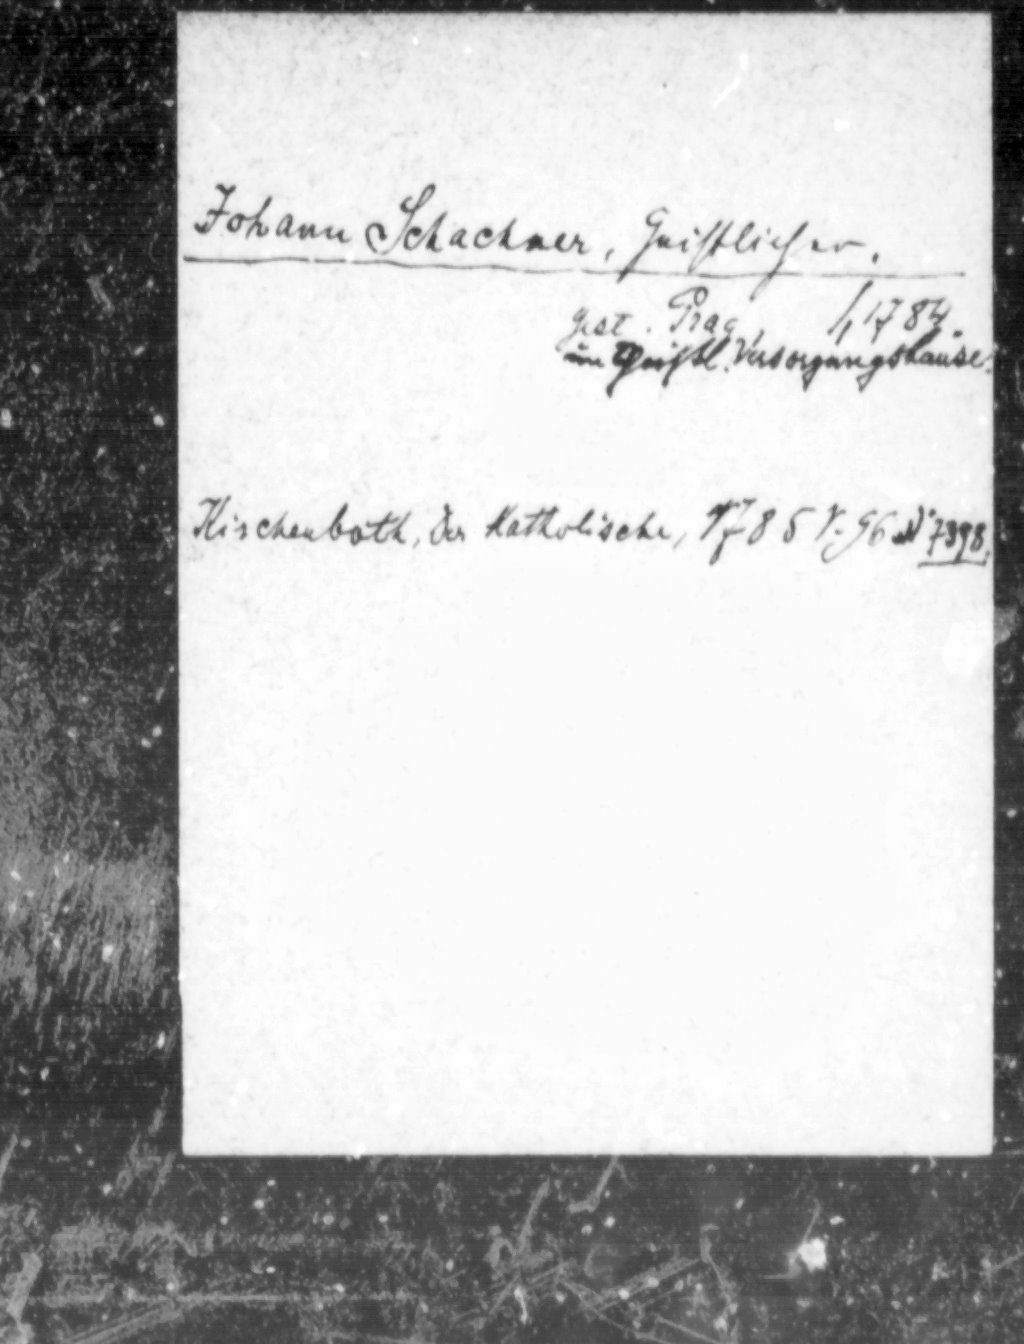 Johann Schachner, Geistlicher.
gest. Prag 1784.
im Geistl. Versorgungshause.
Kirchenboth, der Katholische, 1785 V. 96 N 7898.